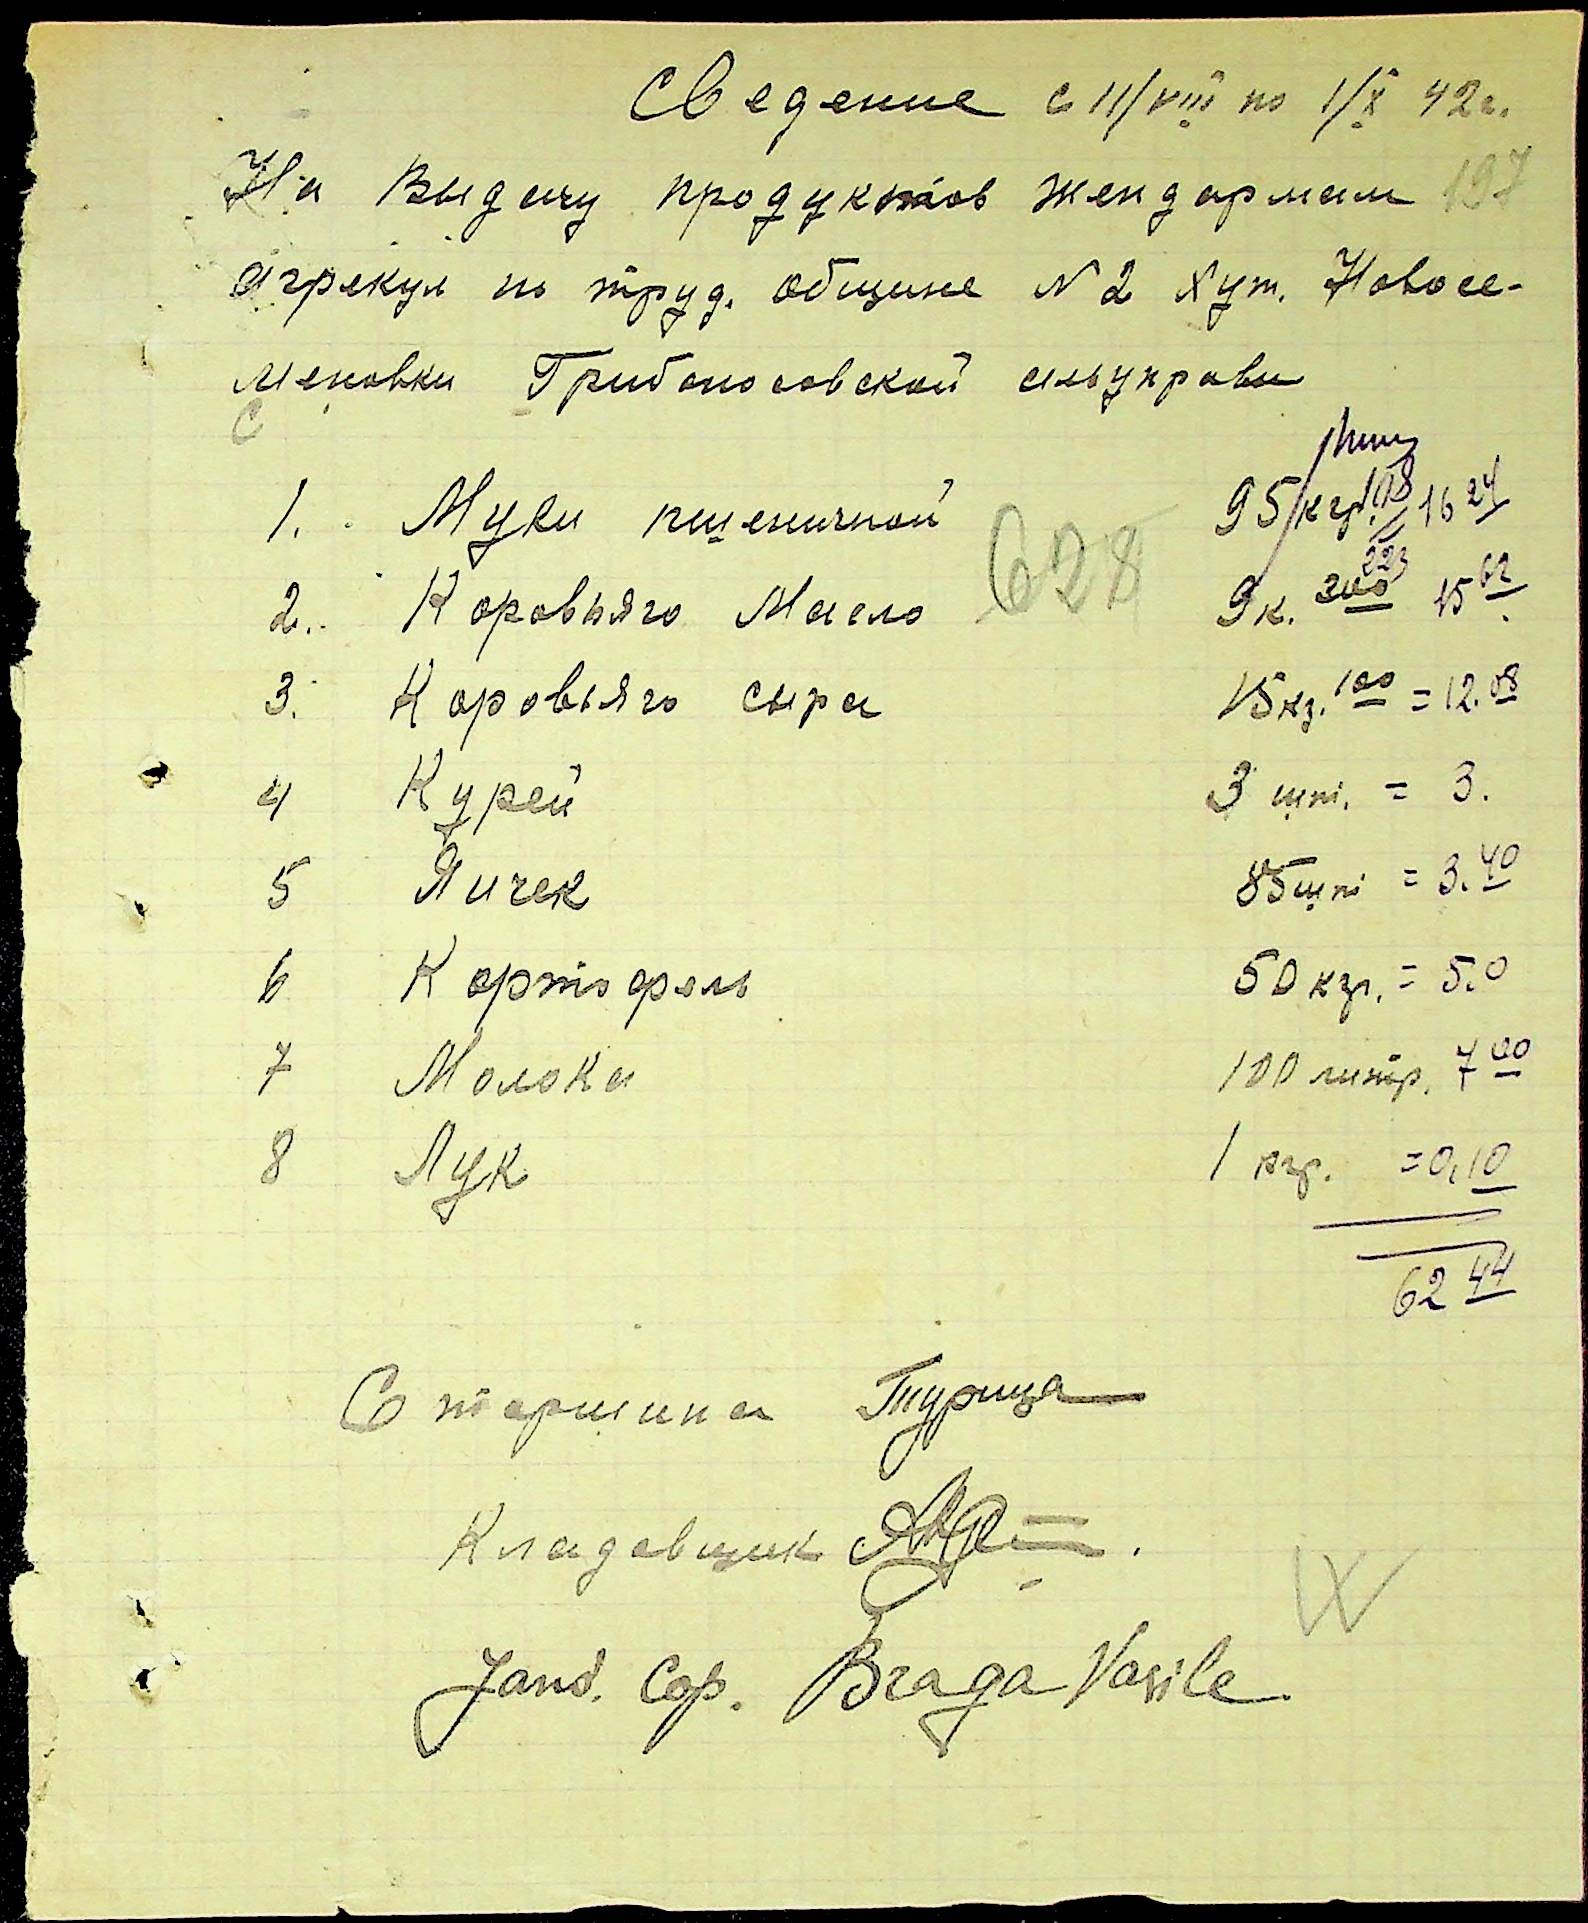 Сведение с 11/VIII по 1/X 42г.
На Выдачу продуктов жендармам 197
агрикул по труд. общине N 2 Хут. Новосе-
меновки Грибоносовской сельуправы
С
1. Муки пшеничной 95 кгр. 16 24
628
2. Коровьяго Масло 9к. 300 15 62
3. Коровьяго сыра 15кг. 100 = 12.08
4 Курей 3 шт. = 3.
5 Яичек 85шт = 3.40
6 Картофель 50 кгр. = 5.0
7 Молока 100 литр. 7 00
8 Лук 1 кгр. = 0,10
62 44
Старшина Турица
Кладовщик
Jand. Cap. Braga Vasile.